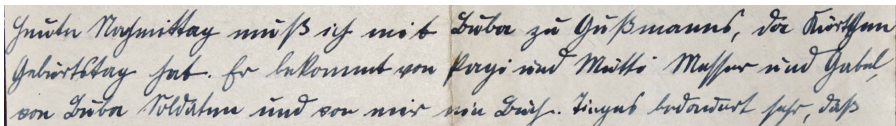 Heute Nachmittag muß ich mit Buba zu Gußmanns, da Kurtchen
Geburtstag hat. Er bekommt von Papi und Mutti Messer und Gabel,
von Buba Soldaten und von mir ein Buch. bedauert sehr, daß